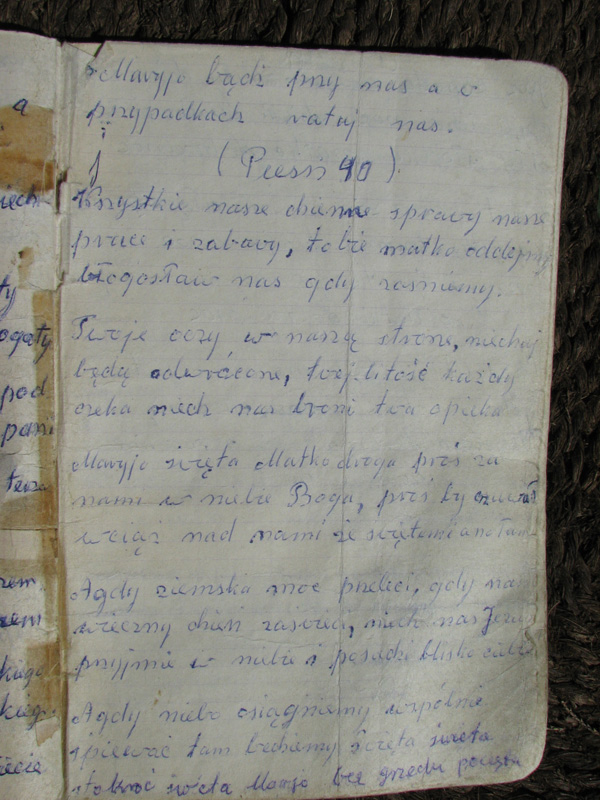 a
iech
ty
ogaty
pod
pani
teraz
rem
rem
kiego
kieg
iecie
Maryjo bądź przy nas a w
przypadkach ratuj nas.
(Pieśń 40).
Wszystkie nasze dzienne sprawy nasze
prace i zabawy, tobie matko oddajmy
błogosław nas gdy rośniemy.
Twoje oczy w naszą strone, niechaj
będą odwrócone, twej litość każdy
czeka niech nas broni twa opieka
Maryjo święta Matko droga proś za
nami w niebie Boga, proś by czuwał
wciąż nad nami ze świętemi aniołami
Agdy ziemska moc przeleci, gdy nam
wieczny dzień zaświeci, niech nas Jezus
przyjmie w niebie i posadzi blisko ciebie
Agdy niebo osiągniemy wspólnie
śpiewać tam bedziemy święta święta
stokroć święta Maryjo bez grzechu poczęta